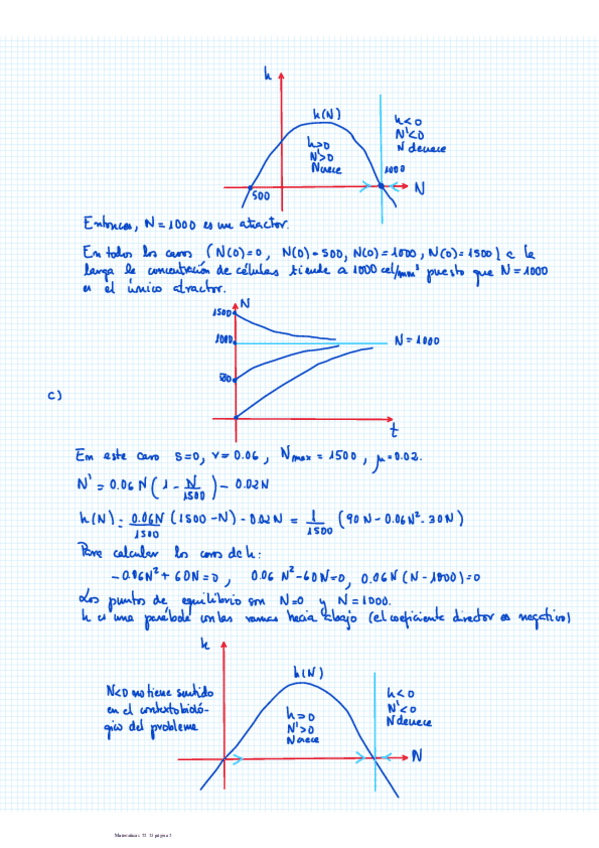 h
h(N)
h<0
N'<0
N decrece
h>0
N'>0
N crece
1000
500
N
Entonces, N=1000 es un atractor.
En todos los casos (N(0)=0, N(0)=500, N(0)=1000, N(0)=1500) a la
larga la concentración de células tiende a 1000 cel/mm³ puesto que N=1000
es el único atractor.
N
1500
1000
N=1000
500
t
c)
En este caso s=0, r=0.06, Nmax=1500, μ=0.02.
N' = 0.06N(1 - N/1500) - 0.02N
h(N) = 0.06N/1500 (1500-N) - 0.02N = 1/1500 (90N - 0.06N² - 30N)
Para calcular los ceros de h:
-0.06N² + 60N = 0, 0.06N² - 60N = 0, 0.06N(N - 1000) = 0
Los puntos de equilibrio son N=0 y N=1000.
h es una parábola con las ramas hacia abajo (el coeficiente director es negativo)
h
h(N)
N<0 no tiene sentido
en el contexto bioló-
gico del problema
h>0
N'>0
N crece
h<0
N'<0
N decrece
N